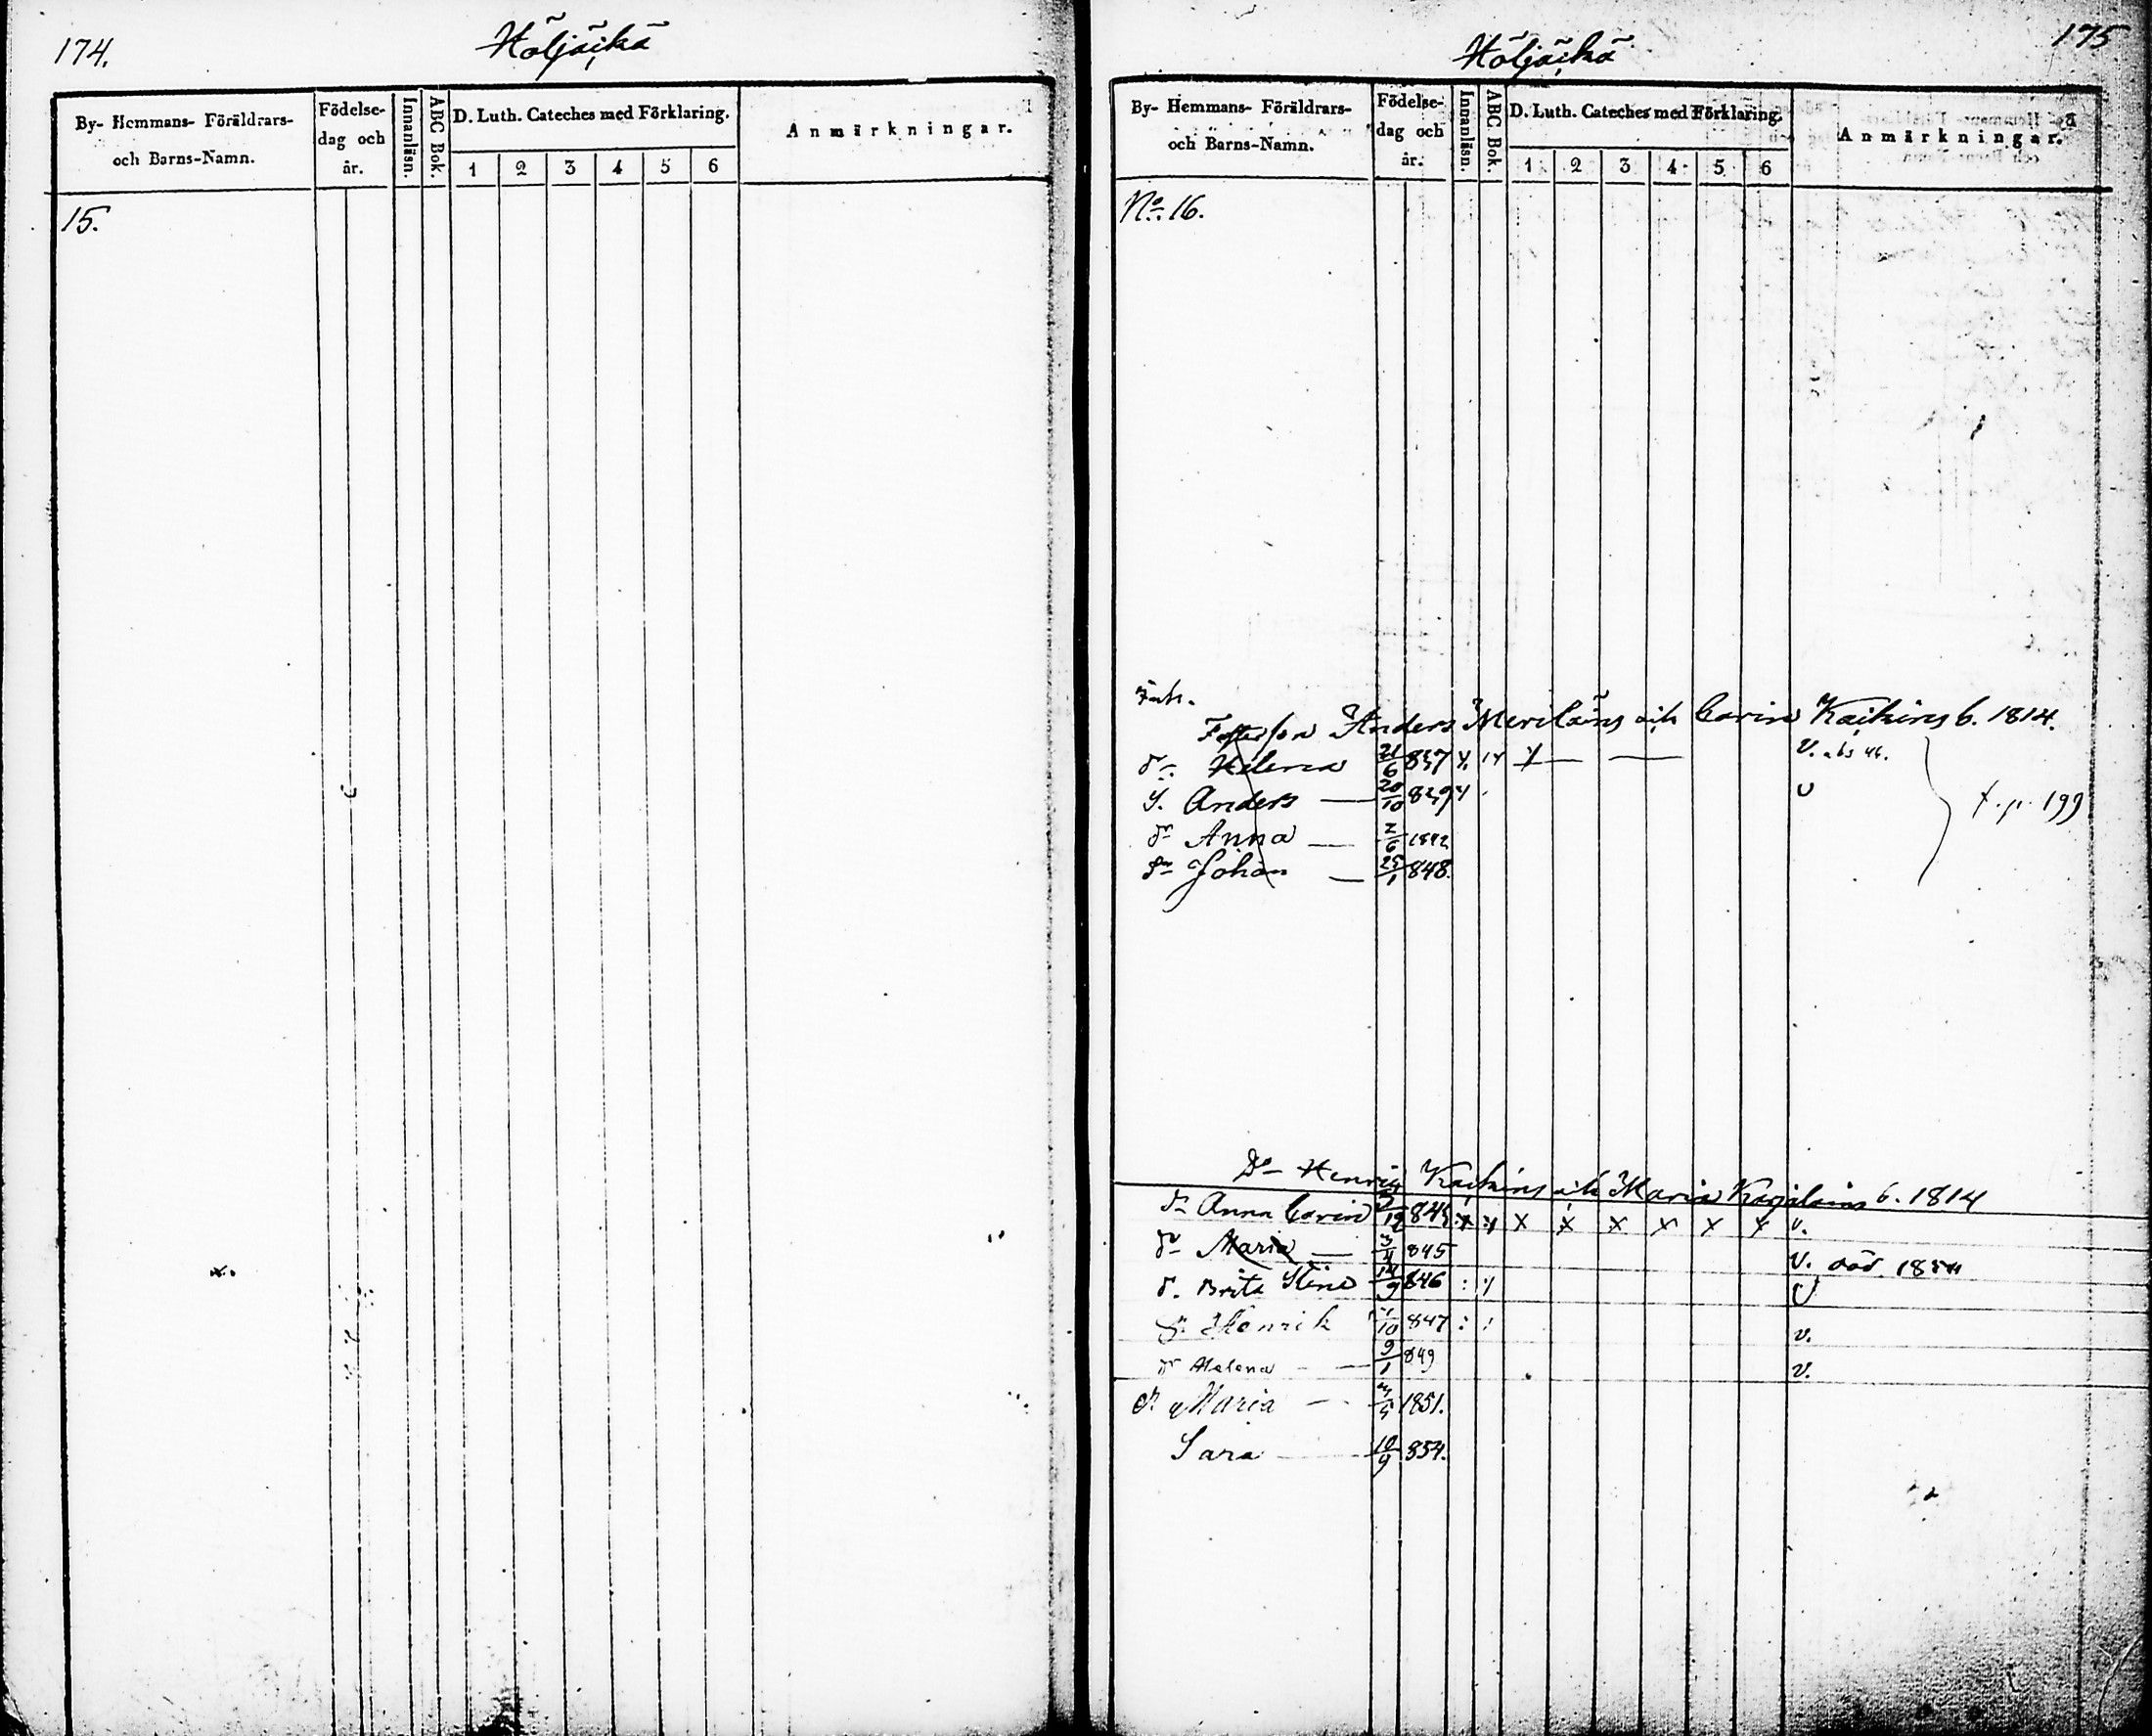 174.
Höljäikä
By- Hemmans- Föräldrars-
och Barns-Namn.
Födelse-
dag och
år.
Innanläsn.
ABC Bok.
D. Luth. Cateches med Förklaring.
1 2 3 4 5 6
Anmärkningar.
15.
175
Höljäikä
By- Hemmans- Föräldrars-
och Barns-Namn.
Födelse-
dag och
år.
Innanläsn.
ABC Bok.
D. Luth. Cateches med Förklaring.
1 2 3 4 5 6
Anmärkningar.
No. 16.
Inh.
Anders Meriläins och Carin Kaikins b. 1814.
dr Helena 21/6 837 V. abs 46.
S. Anders — 20/10 839 v
dr Anna — 2/6 1842 t. p. 199
Sn Johan — 25/1 848.
Do Henric Kaikins och Maria Karjalains b. 1814
dr Anna Carin /12 843 x x x x x x x v.
dr Maria — 3/4 845 v. död.
d. Brita Stina 14/9 846 v
S. Henrik /10 847 v.
dr Helena — 9/1 849 v.
dr Maria — /5 1851.
Sara — 10/9 854.